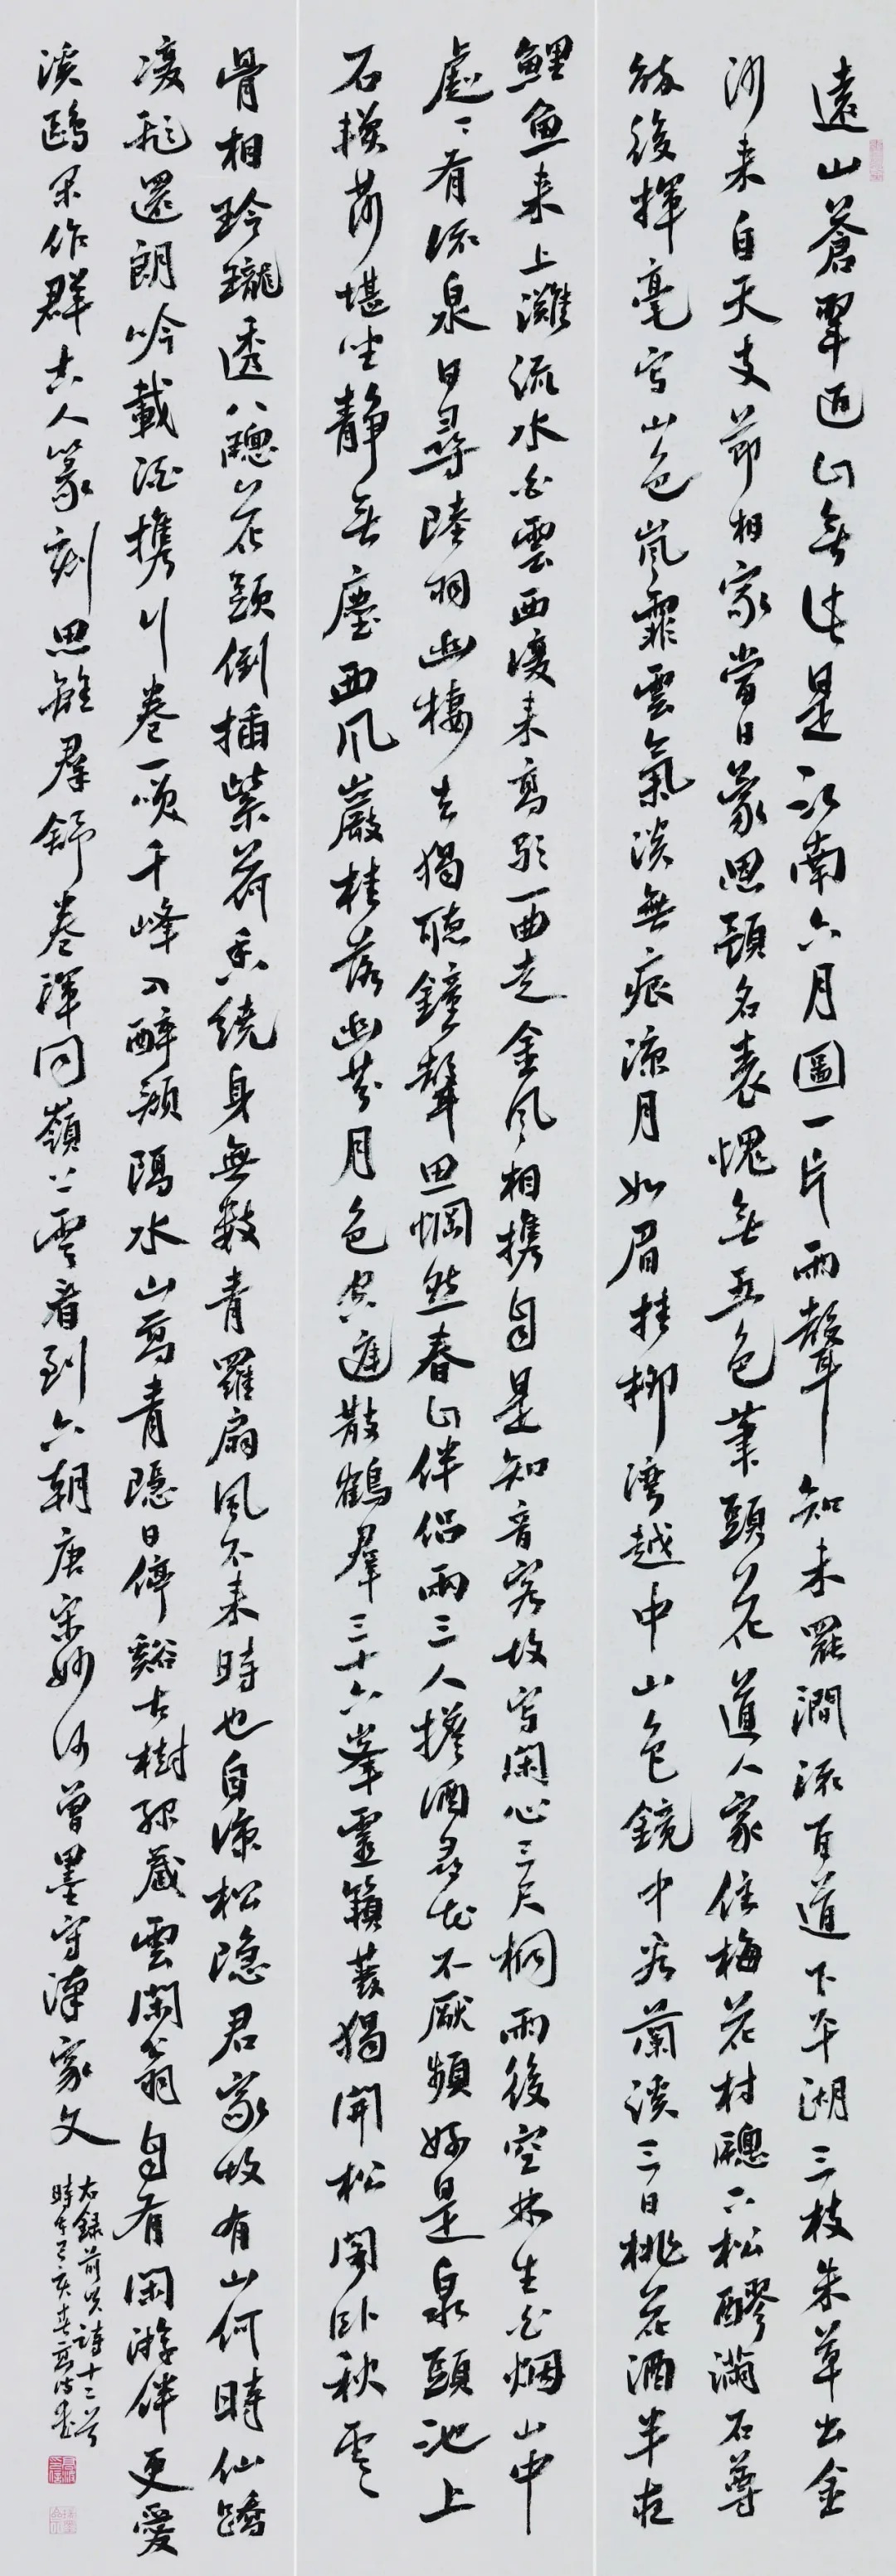 遠山蒼翠近山無此是江南六月圖一片雨聲知未罷澗流百道下平湖三枝朱草出金
沙来自天支節相家當日蒙恩顏名表愧無五色筆頭花道人家住梅花村窗下松醪滿石尊
醉後揮毫写山色嵐霏雲氣淡無痕涼月如眉挂柳灣越中山色鏡中看蘭溪三日桃花酒半夜
鯉魚来上灘流水白雲西復来高歌一曲走金風相携自是知音客故写閑心三尺桐雨後空林生白烟山中
處處有流泉因尋陸羽幽棲去獨聽鐘聲思惘然春山伴侣兩三人擔酒尋花不厭頻好是泉頭池上
石模苔堪坐静無塵西風巖桂落幽芬月色空庭散鶴群三十六峯靈籟發獨開松閣卧秋雲
骨相玲瓏透八窗花頭倒插紫荷香繞身無數青羅扇風不来時也自涼松隱君家故有山何時仙蹻
凌飛還朗吟載酒携行卷一噴千峰入醉顏隔水山高青隱日停谿古樹綠藏雲閑翁自有閑游伴更愛
溪鷗不作群古人篆刻思離群舒卷渾同嶺上雲看到六朝唐宋妙何曾墨守漢家文
右録前賢詩十二首
時年己亥春